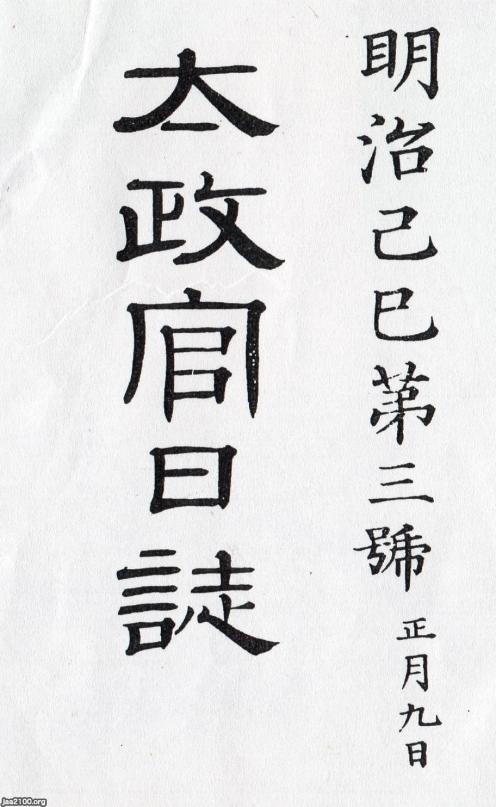 明治己巳第三號 正月九日
太政官日誌
jaa2100.org